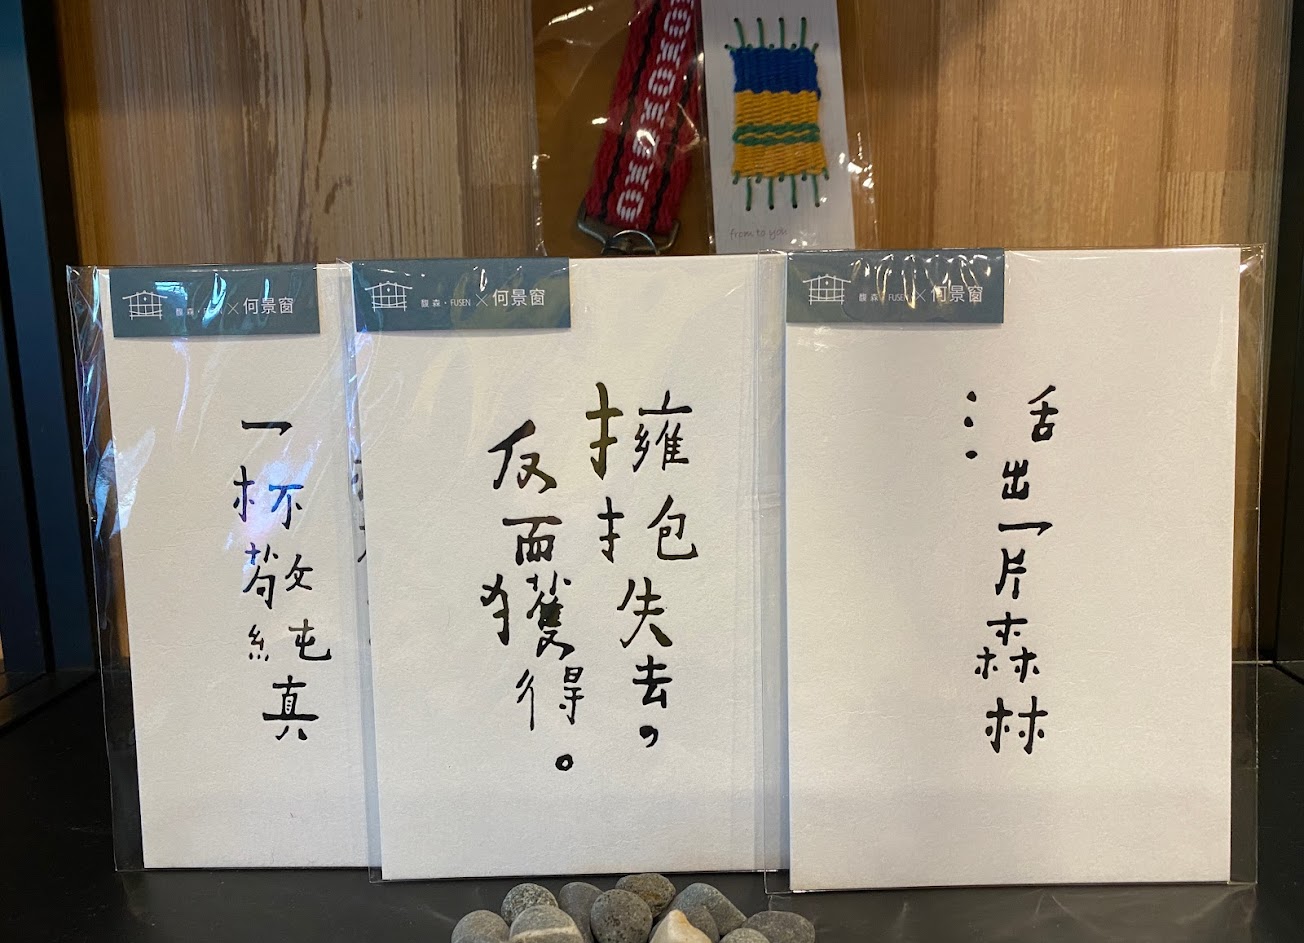 from to you
馥森・FUSEN × 何景窗
一杯敬純真
馥森・FUSEN × 何景窗
擁抱失去，
反面獲得。
馥森・FUSEN × 何景窗
活出一片森林